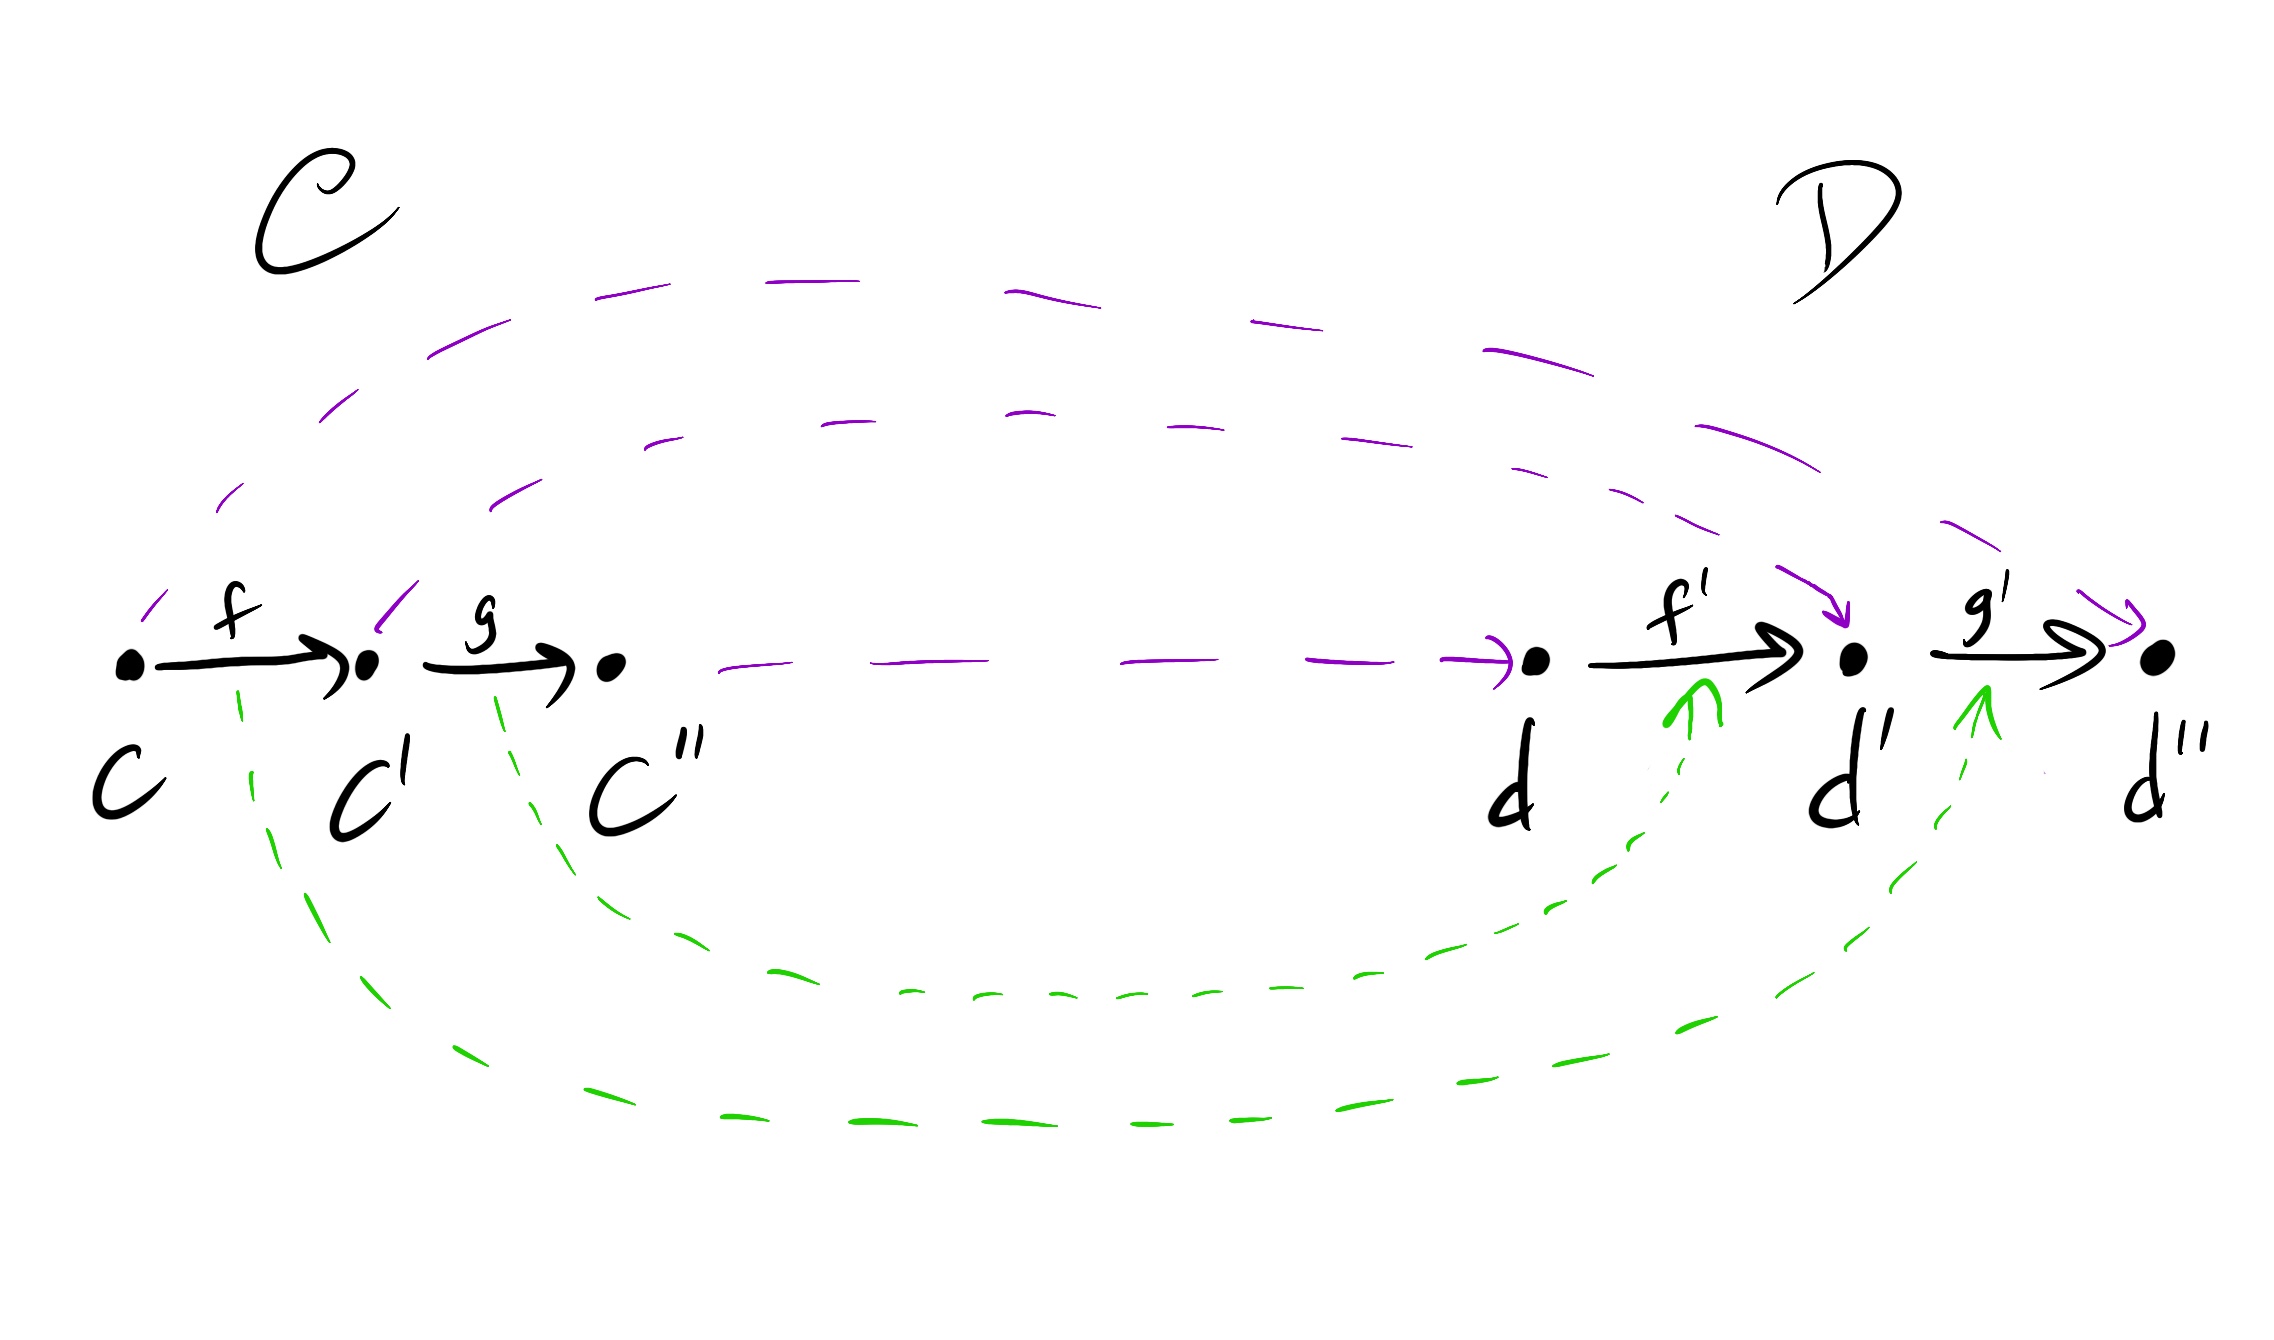 C D
f g f' g'
c c' c'' d d' d''